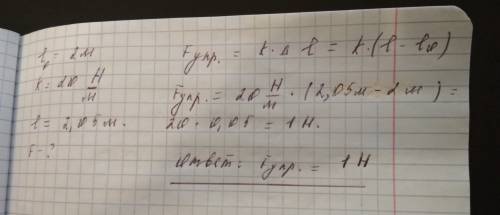 l₀ = 2м
k = 20 Н/м
l = 2,05 м.
F - ?
Fупр. = k · Δ l = k · (l - l₀)
Fупр. = 20 Н/м · (2,05м - 2 м) =
20 · 0,05 = 1 Н.
Ответ: Fупр. = 1 Н